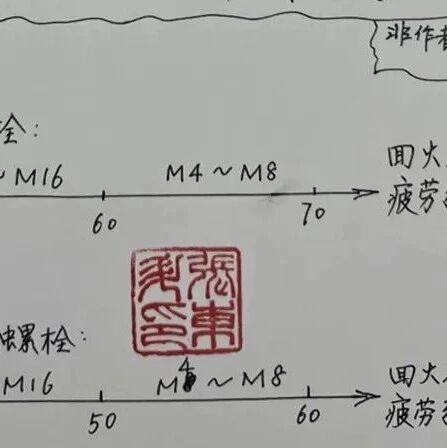 非作者
栓:
~M16 M4~M8 回火
60 70 疲劳
張東 印
螺栓:
M16 M4~M8 回火
50 60 疲劳